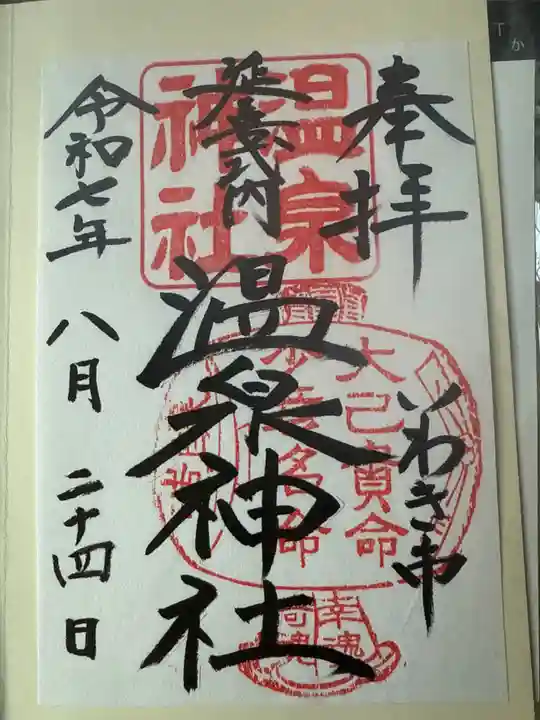 奉拝
いわき市
延喜式内
温泉神社
令和七年
八月
二十四日
温泉
神社
大己貴命
少彦名命
幸魂
奇魂
か